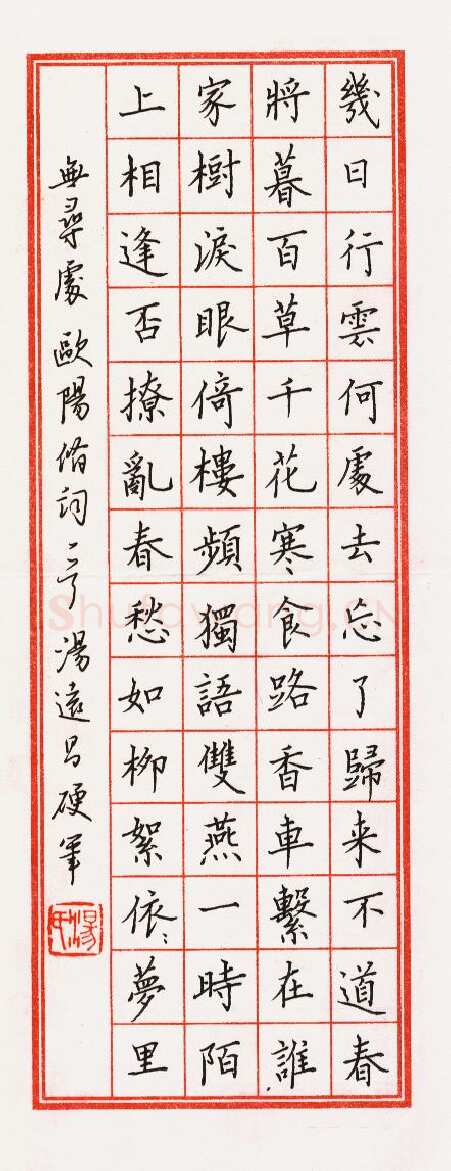 幾日行雲何處去忘了歸来不道春
將暮百草千花寒食路香車繫在誰
家樹淚眼倚樓頻獨語雙燕一時陌
上相逢否撩亂春愁如柳絮依〻夢里
無尋處 歐陽脩詞一首 湯遠昌硬筆